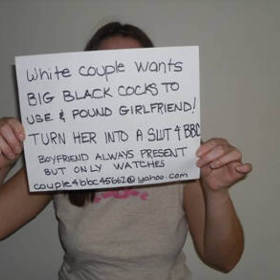 White couple wants
BIG BLACK COCKS TO
USE & POUND GIRLFRIEND!
TURN HER INTO A SLUT 4 BBC
BOYFRIEND ALWAYS PRESENT
BUT ONLY WATCHES
couple4bbc45662@yahoo.com